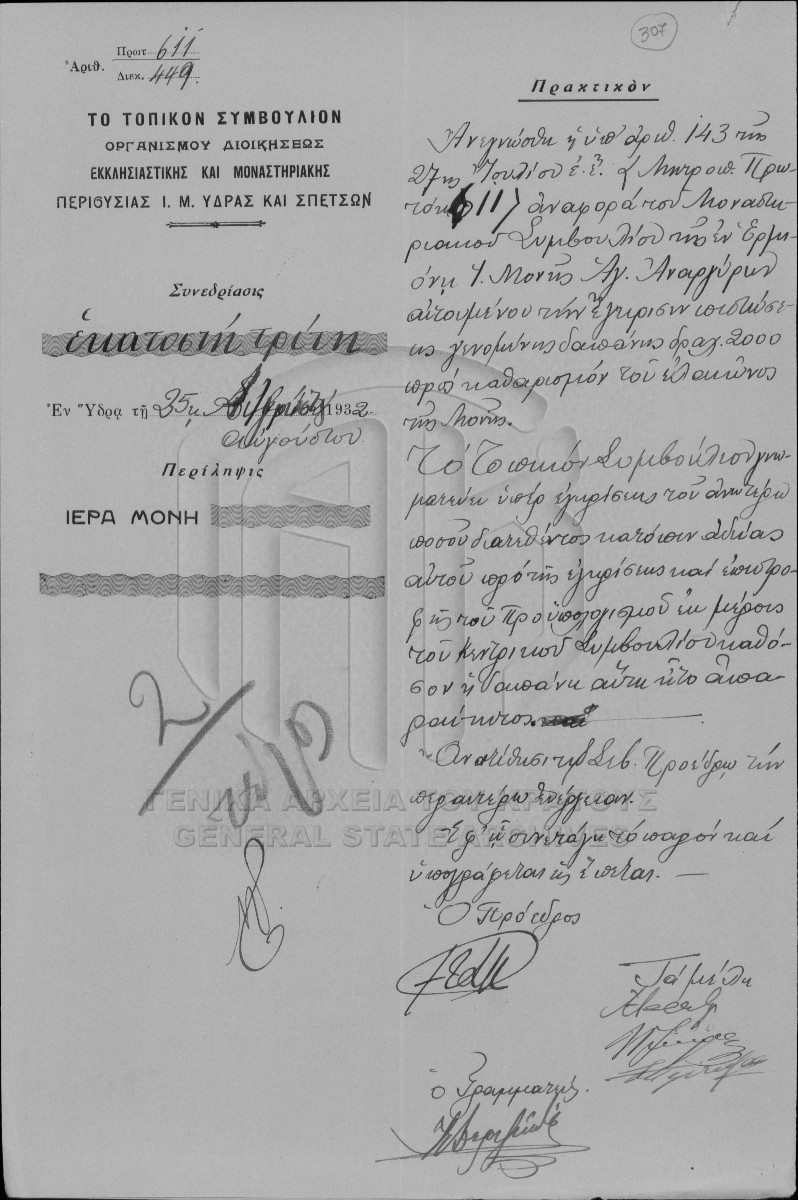 307
Ἀριθ. Πρωτ. 611
Διεκ. 449.
ΤΟ ΤΟΠΙΚΟΝ ΣΥΜΒΟΥΛΙΟΝ
ΟΡΓΑΝΙΣΜΟΥ ΔΙΟΙΚΗΣΕΩΣ
ΕΚΚΛΗΣΙΑΣΤΙΚΗΣ ΚΑΙ ΜΟΝΑΣΤΗΡΙΑΚΗΣ
ΠΕΡΙΟΥΣΙΑΣ Ι. Μ. ΥΔΡΑΣ ΚΑΙ ΣΠΕΤΣΩΝ
Συνεδρίασις
ἑκατοστή τρίτη
Ἐν Ὕδρᾳ τῇ 25ῃ 1932
Αὐγούστου
Περίληψις
ΙΕΡΑ ΜΟΝΗ
Πρακτικὸν
Ἀνεγνώσθη ἡ ὑπ' ἀριθ. 143 τῆς
27ης Ἰουλίου ἐ.ἔ. (Μητροπ. Πρω-
τόκ. 611) ἀναφορά τοῦ Μοναστη-
ριακοῦ Συμβουλίου τῆς ἐν Ἑρμι-
όνῃ Ἱ. Μονῆς Ἁγ. Ἀναργύρων
αἰτουμένου τήν ἔγκρισιν πιστώσε-
ως γενομένης δαπάνης δραχ. 2000
πρός καθαρισμόν τοῦ ἐλαιῶνος
τῆς Μονῆς.
Τό Τοπικόν Συμβούλιον γνω-
ματεύει ὑπέρ ἐγκρίσεως τοῦ ἀνωτέρω
ποσοῦ διατεθέντος κατόπιν ἀδείας
αὐτοῦ πρό τῆς ἐγκρίσεως καί ἐπιστρο-
φῆς τοῦ Προϋπολογισμοῦ ἐκ μέρους
τοῦ Κεντρικοῦ Συμβουλίου καθό-
σον ἡ δαπάνη αὕτη ἦτο ἀπα-
ραίτητος.
Ἀνατίθησι τῷ Σεβ. Προέδρῳ τήν
περαιτέρω ἐνέργειαν.
Ἐφ' ᾧ συνετάγη τό παρόν καί
ὑπογράφεται ὡς ἕπεται. —
Ὁ Πρόεδρος
Τά μέλη
ὁ Γραμματεύς.
ΓΕΝΙΚΑ ΑΡΧΕΙΑ ΤΟΥ ΚΡΑΤΟΥΣ
GENERAL STATE ARCHIVES